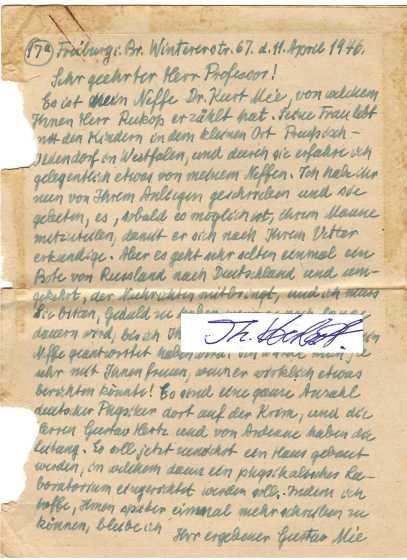 17a Freiburg i. Br. Wintererstr. 67. d. 11. April 1946.
Sehr geehrter Herr Professor!
Es ist mein Neffe Dr. Kurt Mie, von welchem
Ihnen Herr Rukop erzählt hat. Seine Frau lebt
mit den Kindern in dem kleinen Ort Preußisch-
in Westfalen, und durch sie erfahre ich
gelegentlich etwas von meinem Neffen. Ich habe ihr
nun von Ihrem Anliegen geschrieben und sie
gebeten, es, sobald es möglich ist, ihrem Manne
mitzuteilen, damit er sich nach Ihrem Vetter
erkundige. Aber es geht sehr selten einmal ein
Bote von Russland nach Deutschland und um-
gekehrt, der Nachrichten mitbringt, und ich muss
Sie bitten, Geduld zu
dauern wird, bis ich
Neffe geantwortet
sehr mit Ihnen freuen, wenn er wirklich etwas
berichten könnte! Es sind eine ganze Anzahl
deutscher Physiker dort auf der Krim, und die
Herren Gustav Hertz und von Ardenne haben die
Leitung. Es soll jetzt zunächst ein Haus gebaut
werden, in welchem dann ein physikalisches La-
boratorium eingerichtet werden soll. Indem ich
hoffe, Ihnen später einmal mehr schreiben zu
können, bleibe ich Ihr ergebener Gustav Mie